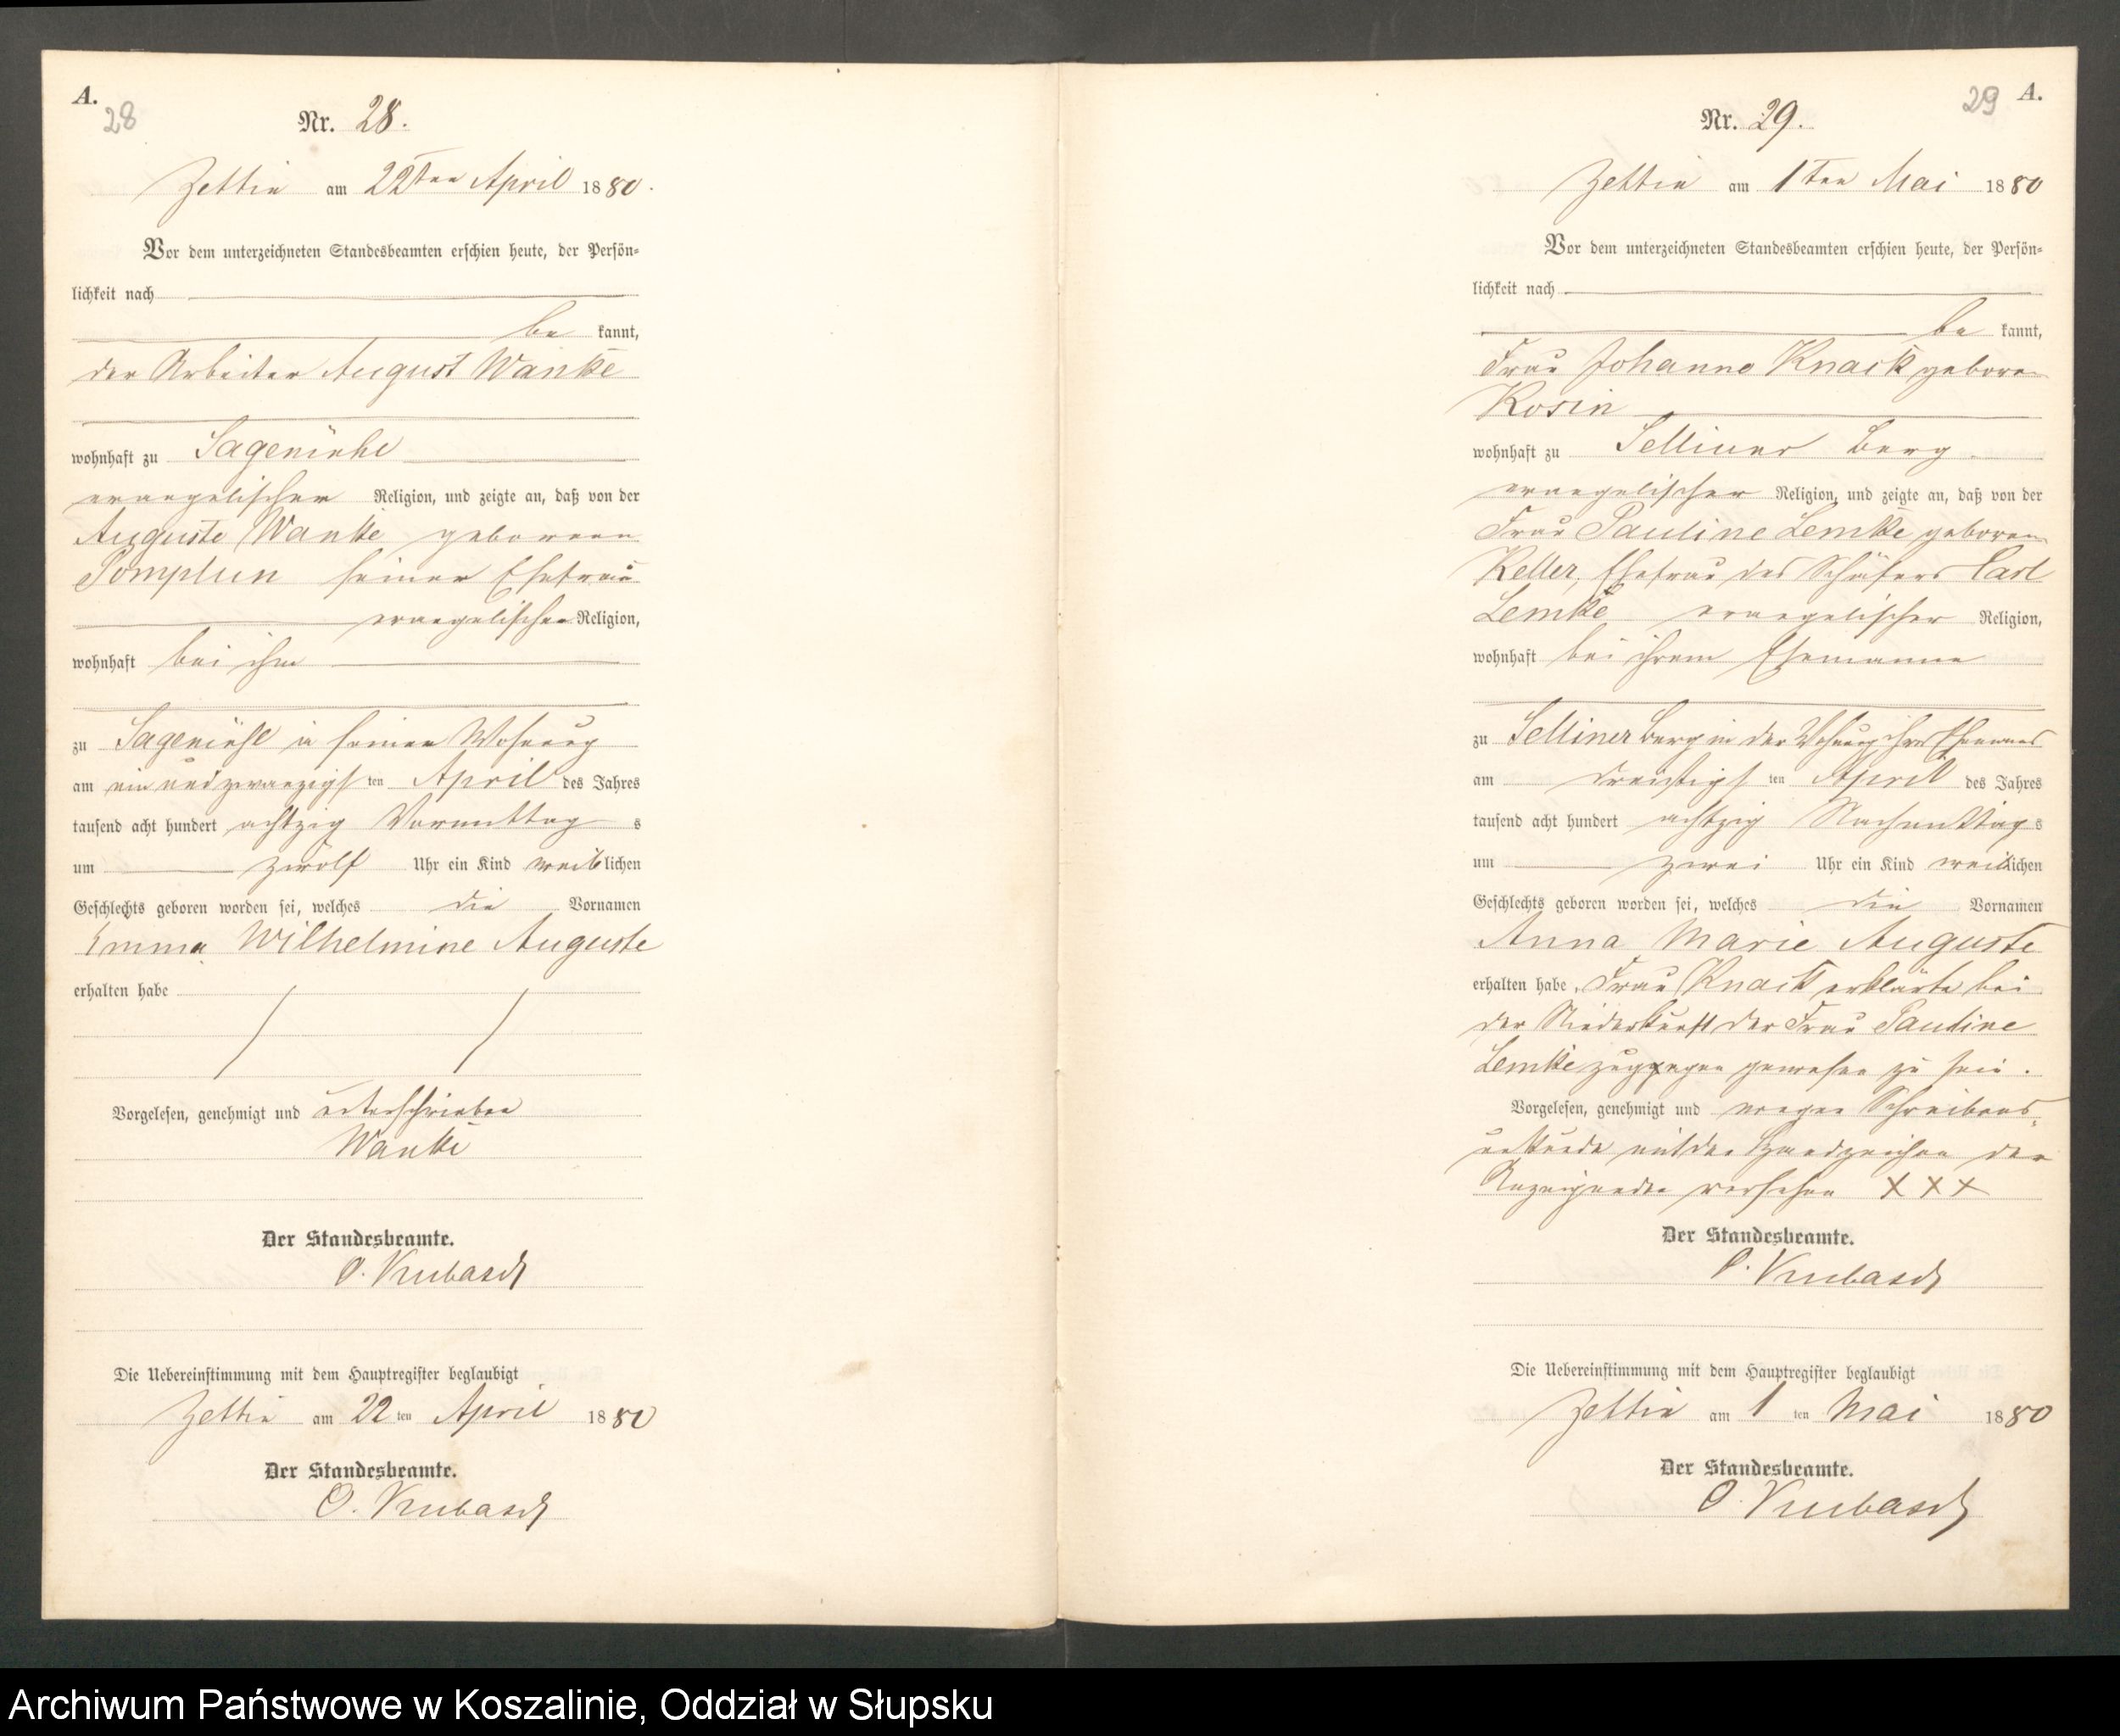 A.
28
Nr. 28.
Zettin am 22ten April 1880.
Vor dem unterzeichneten Standesbeamten erschien heute, der Persön-
lichkeit nach
be kannt,
der Arbeiter August Wanke
wohnhaft zu Sagemühl
evangelischer Religion, und zeigte an, daß von der
Auguste Wanke geborenen
Pomplun seiner Ehefrau
evangelischer Religion,
wohnhaft bei ihm
zu Sagemühl in seiner Wohnung
am ein und zwanzigsten April des Jahres
tausend acht hundert achtzig Vormittags
um zwölf Uhr ein Kind weiblichen
Geschlechts geboren worden sei, welches die Vornamen
Emma Wilhelmine Auguste
erhalten habe
Vorgelesen, genehmigt und unterschrieben
Wanke
Der Standesbeamte.
O. Kubasch
Die Uebereinstimmung mit dem Hauptregister beglaubigt
Zettin am 22ten April 1880
Der Standesbeamte.
O. Kubasch
29 A.
Nr. 29.
Zettin am 1ten Mai 1880
Vor dem unterzeichneten Standesbeamten erschien heute, der Persön-
lichkeit nach
be kannt,
Frau Johanne Knack geboren
Kosin
wohnhaft zu Selliner Berg
evangelischer Religion, und zeigte an, daß von der
Frau Pauline Lemke geboren
Keller, Ehefrau des Schäfers Carl
Lemke evangelischer Religion,
wohnhaft bei ihrem Ehemanne
zu Selliner Berg in der Wohnung ihres Ehemannes
am dreißigsten April des Jahres
tausend acht hundert achtzig Nachmittags
um zwei Uhr ein Kind weiblichen
Geschlechts geboren worden sei, welches die Vornamen
Anna Marie Auguste
erhalten habe. Frau Knack erklärte bei
der Niederkunft der Frau Pauline
Lemke zugegen gewesen zu sein.
Vorgelesen, genehmigt und wegen Schreibens
unkunde mit den Handzeichen der
Anzeigenden versehen XXX
Der Standesbeamte.
O. Kubasch
Die Uebereinstimmung mit dem Hauptregister beglaubigt
Zettin am 1 ten Mai 1880
Der Standesbeamte.
O. Kubasch
Archiwum Państwowe w Koszalinie, Oddział w Słupsku